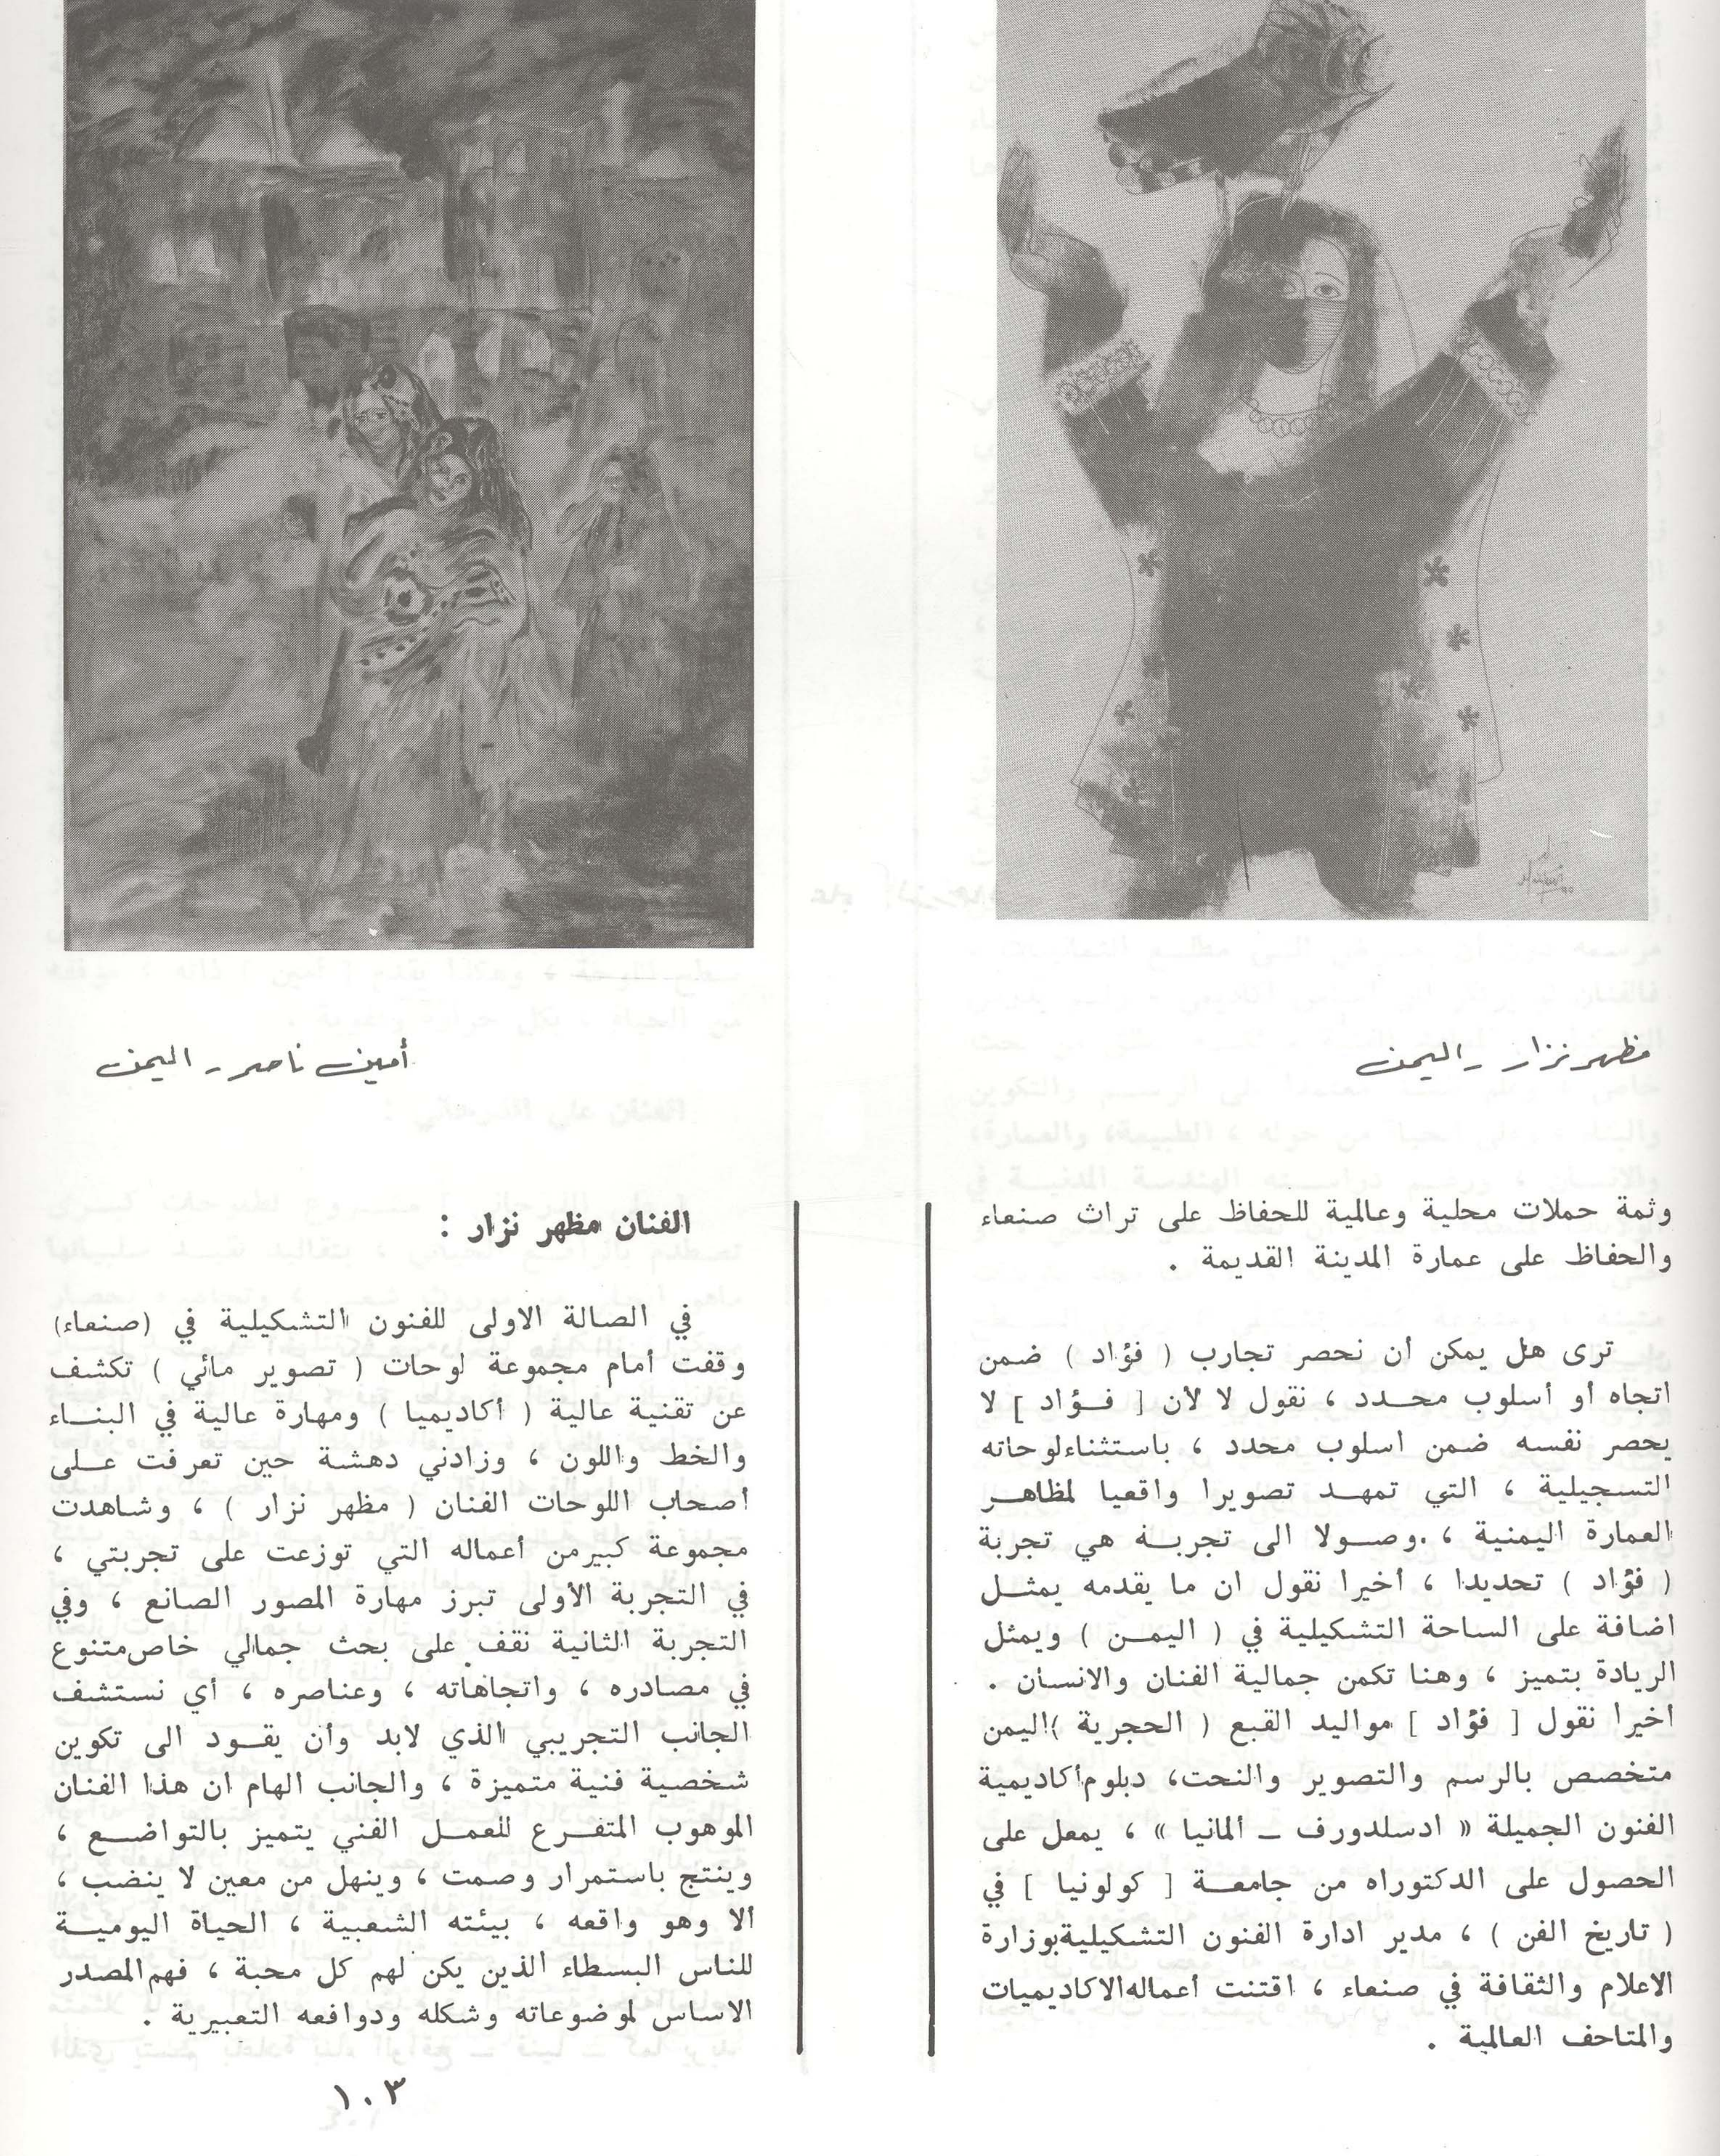 مظهر نزار - اليمن
أمين ناصر - اليمن
وثمة حملات محلية وعالمية للحفاظ على تراث صنعاء
والحفاظ على عمارة المدينة القديمة .
ترى هل يمكن أن نحصر تجارب ( فؤاد ) ضمن
اتجاه أو أسلوب محدد ، نقول لا لأن [ فؤاد ] لا
يحصر نفسه ضمن اسلوب محدد ، باستثناء لوحاته
التسجيلية ، التي تمهد تصويرا واقعيا لمظاهر
العمارة اليمنية ، . وصولا الى تجربة هي تجربة
( فؤاد ) تحديدا ، أخيرا نقول ان ما يقدمه يمثل
اضافة على الساحة التشكيلية في ( اليمن ) ويمثل
الريادة بتميز ، وهنا تكمن جمالية الفنان والانسان .
أخيرا نقول [ فؤاد ] مواليد القبع ( الحجرية ) اليمن
متخصص بالرسم والتصوير والنحت، دبلوم أكاديمية
الفنون الجميلة « ادسلدورف ـ ألمانيا » ، يمعل على
الحصول على الدكتوراه من جامعة [ كولونيا ] في
( تاريخ الفن ) ، مدير ادارة الفنون التشكيلية بوزارة
الاعلام والثقافة في صنعاء ، اقتنت أعماله الاكاديميات
والمتاحف العالمية .
الفنان مظهر نزار :
في الصالة الاولى للفنون التشكيلية في (صنعاء)
وقفت أمام مجموعة لوحات ( تصوير مائي ) تكشف
عن تقنية عالية ( أكاديميا ) ومهارة عالية في البناء
والخط واللون ، وزادني دهشة حين تعرفت على
أصحاب اللوحات الفنان ( مظهر نزار ) ، وشاهدت
مجموعة كبير من أعماله التي توزعت على تجربتي ،
في التجربة الأولى تبرز مهارة المصور الصانع ، وفي
التجربة الثانية نقف على بحث جمالي خاص متنوع
في مصادره ، واتجاهاته ، وعناصره ، أي نستشف
الجانب التجريبي الذي لابد وأن يقود الى تكوين
شخصية فنية متميزة ، والجانب الهام ان هذا الفنان
الموهوب المتفرغ للعمل الفني يتميز بالتواضع ،
وينتج باستمرار وصمت ، وينهل من معين لا ينضب ،
ألا وهو واقعه ، بيئته الشعبية ، الحياة اليومية
للناس البسطاء الذين يكن لهم كل محبة ، فهم المصدر
الاساس لموضوعاته وشكله ودوافعه التعبيرية .
١٠٣